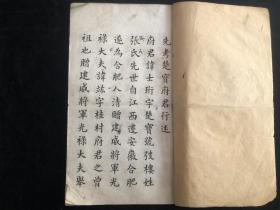 先考楚寶府君行述
府君諱士珩字楚寶號弢樓姓
張氏先世自江西遷安徽合肥
遂為合肥人清贈建威將軍光
祿大夫諱字桂村府君之曾
祖也贈建威將軍光祿大夫舉